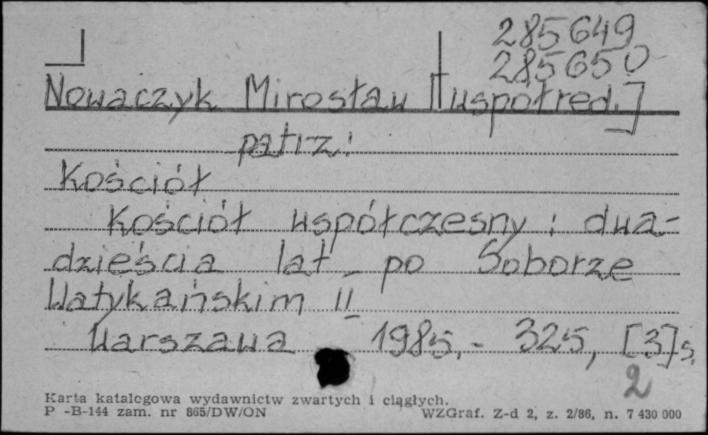 285649
285650
Nowaczyk Mirosław [współred.]
patrz:
Kościół
Kościół współczesny : dwa-
dzieścia lat po Soborze
Watykańskim II
Warszawa 1985.- 325, [3]s.
2
Karta katalogowa wydawnictw zwartych i ciągłych.
P -B-144 zam. nr 865/DW/ON WZGraf. Z-d 2, z. 2/86, n. 7 430 000